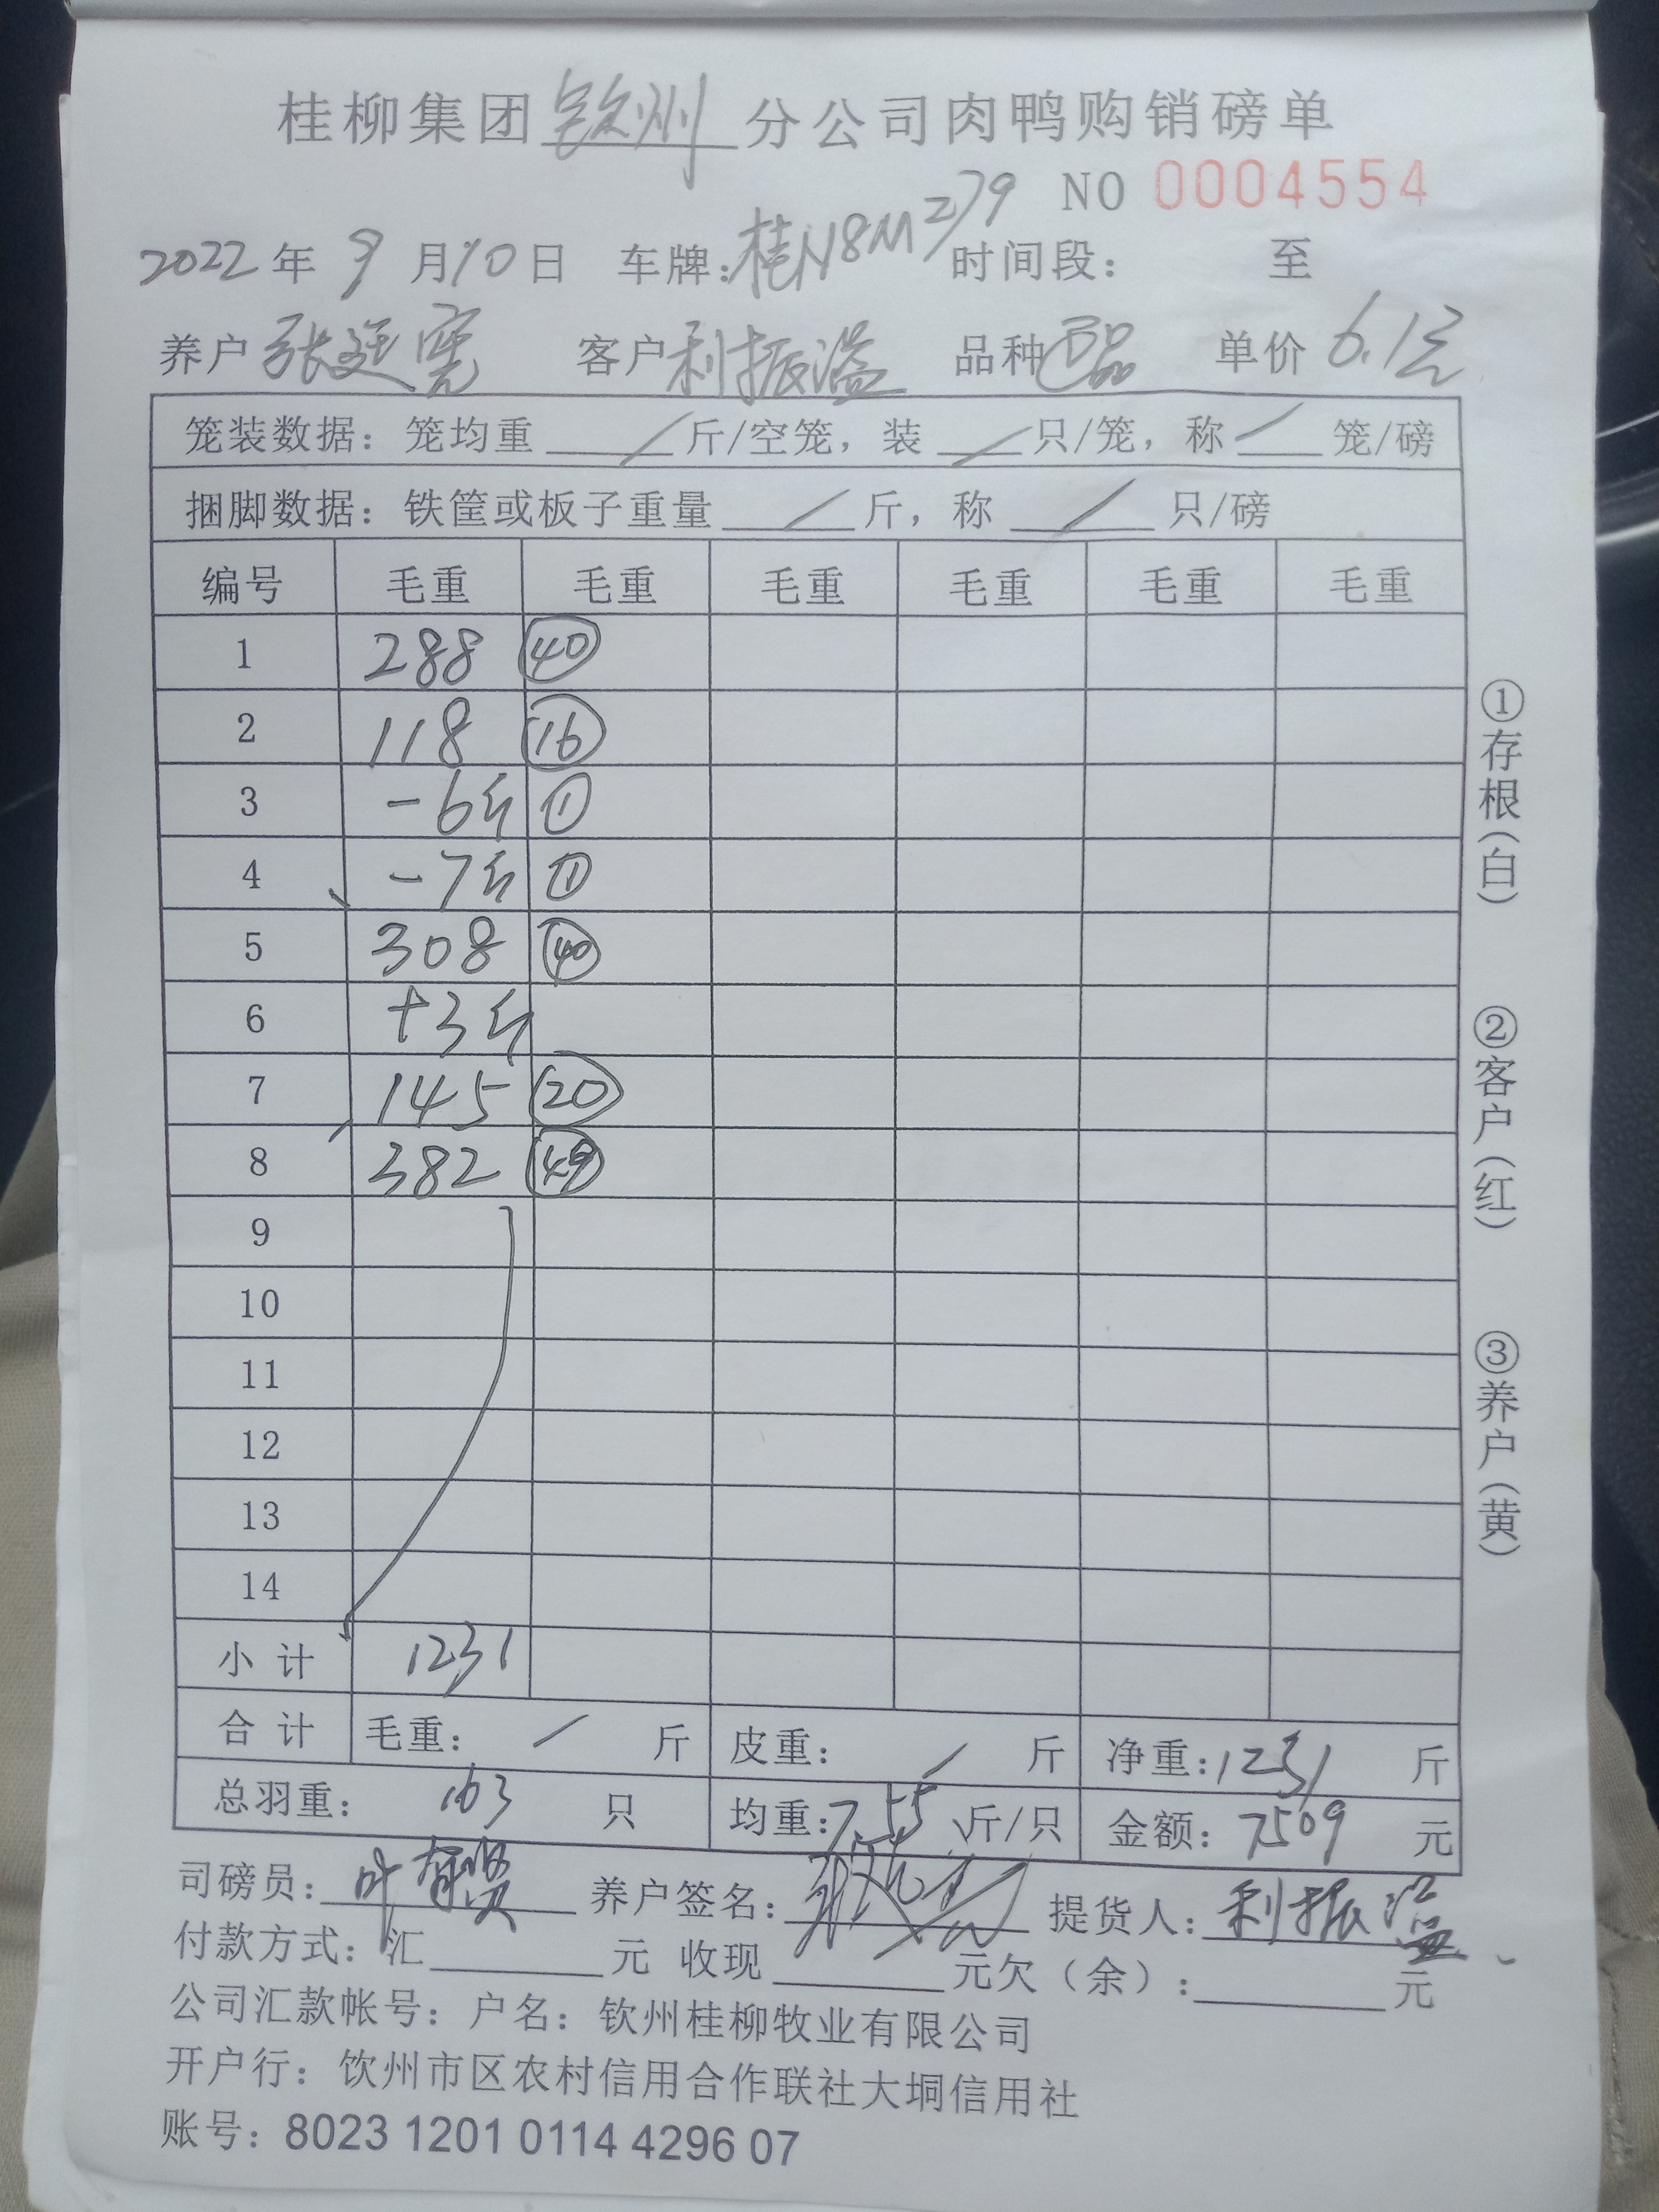 桂柳集团 钦州 分公司肉鸭购销磅单
NO 0004554
2022 年 9 月 10 日 车牌：桂N8M279 时间段： 至
养户 张廷宪 客户 利振溢 品种 单价 6.1元
笼装数据：笼均重 / 斤/空笼，装 / 只/笼，称 / 笼/磅
捆脚数据：铁筐或板子重量 / 斤，称 / 只/磅
编号 毛重 毛重 毛重 毛重 毛重 毛重
1 288 40
2 118 16
3 -6斤 1
4 -7斤 1
5 308 40
6 +3斤
7 145 20
8 382 49
9
10
11
12
13
14
小计 1231
合计 毛重： / 斤 皮重： / 斤 净重：1231 斤
总羽重： 163 只 均重：7.55 斤/只 金额：7509 元
司磅员：叶有贤 养户签名： 提货人：利振溢
付款方式：汇 元 收现 元欠（余）： 元
公司汇款帐号：户名：钦州桂柳牧业有限公司
开户行：钦州市区农村信用合作联社大垌信用社
账号：8023 1201 0114 4296 07
①存根（白）
②客户（红）
③养户（黄）